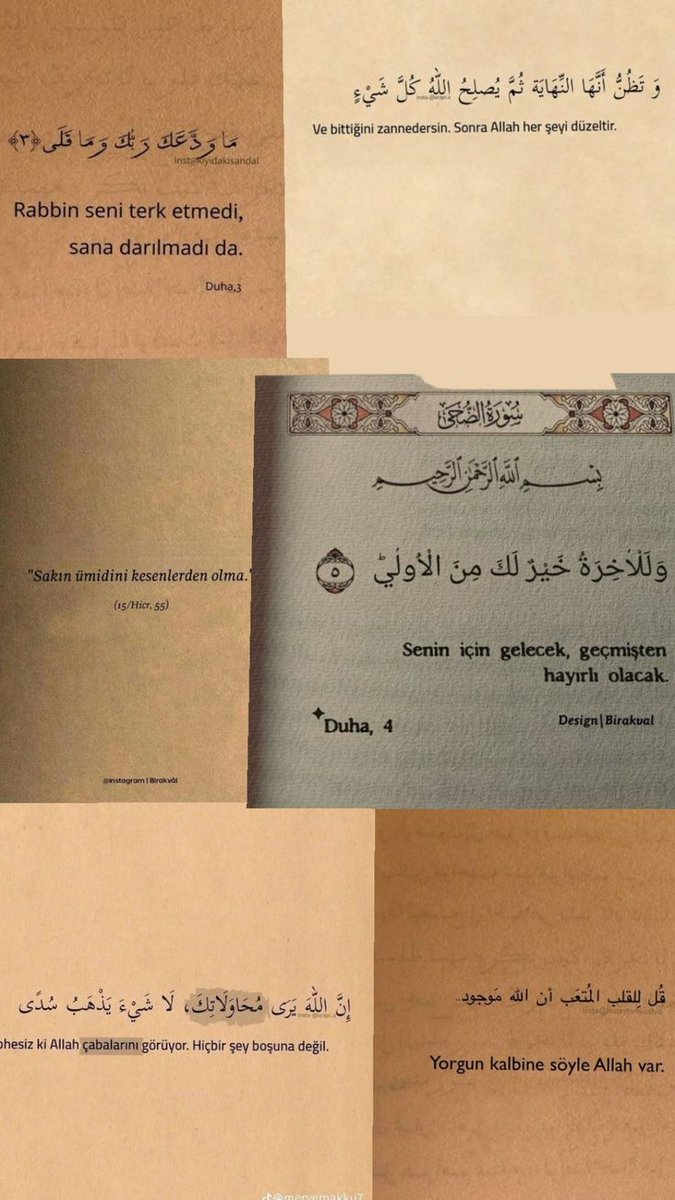 مَا وَدَّعَكَ رَبُّكَ وَمَا قَلَى ﴿٣﴾
inst@kiyidakisandal
Rabbin seni terk etmedi,
sana darılmadı da.
Duha,3
وَ تَظُنُّ أَنَّهَا النِّهَايَة ثُمَّ يُصلِحُ اللّٰهُ كُلَّ شَيْءٍ
Ve bittiğini zannedersin. Sonra Allah her şeyi düzeltir.
"Sakın ümidini kesenlerden olma."
(15/Hicr, 55)
@instagram | Birakvâl
سُورَةُ الضُّحَى
بِسْمِ اللَّهِ الرَّحْمَٰنِ الرَّحِيمِ
وَلَلْاٰخِرَةُ خَيْرٌ لَكَ مِنَ الْاُو۫لٰىۜ ٥
Senin için gelecek, geçmişten
hayırlı olacak.
Duha, 4
Design|Birakval
إِنَّ اللّٰهَ يَرَى مُحَاوَلَاتِكَ، لَا شَيْءَ يَذْهَبُ سُدًى
phesiz ki Allah çabalarını görüyor. Hiçbir şey boşuna değil.
@mervemakku7
قُل لِلقلب المُتعَب أن الله مَوجود..
Yorgun kalbine söyle Allah var.